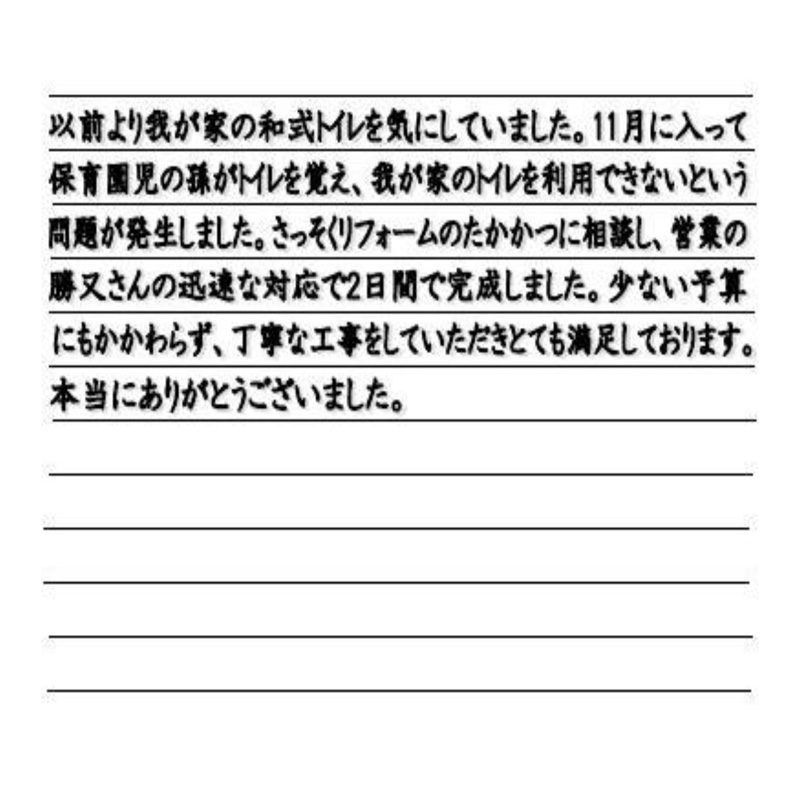 以前より我が家の和式トイレを気にしていました。11月に入って
保育園児の孫がトイレを覚え、我が家のトイレを利用できないという
問題が発生しました。さっそくリフォームのたかかつに相談し、営業の
勝又さんの迅速な対応で2日間で完成しました。少ない予算
にもかかわらず、丁寧な工事をしていただきとても満足しております。
本当にありがとうございました。